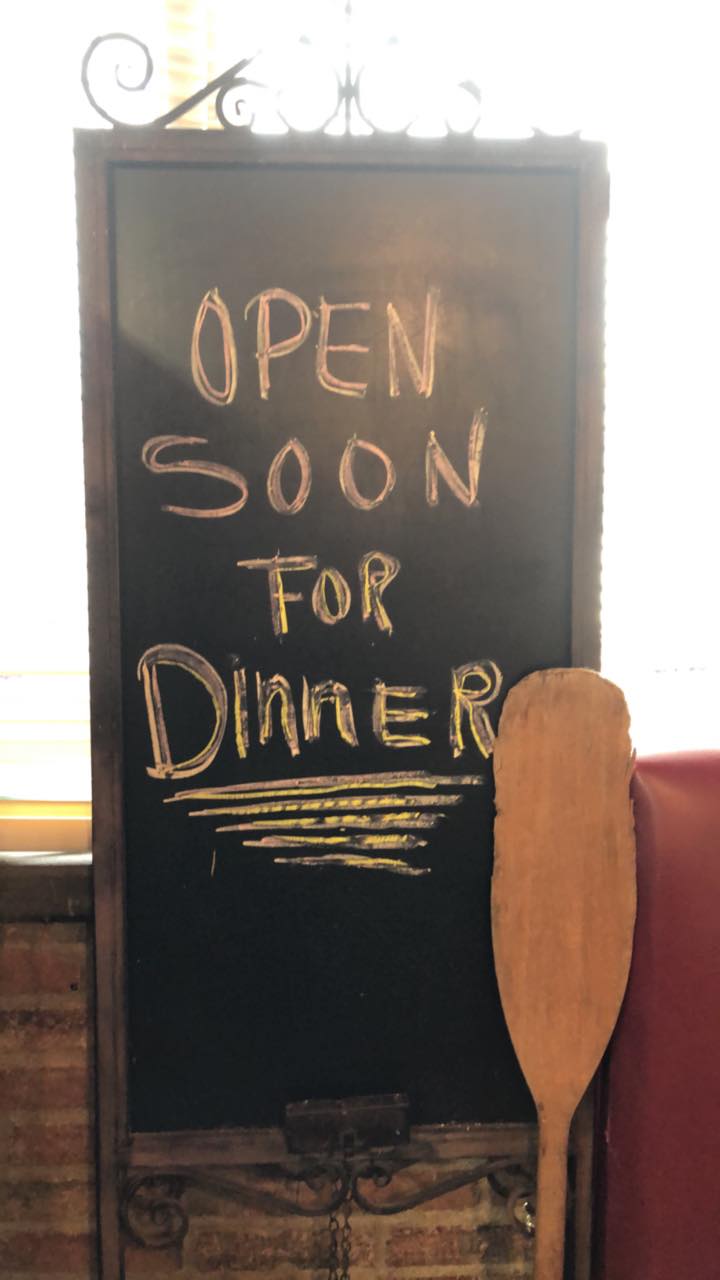 OPEN
SOON
FOR
DINNER